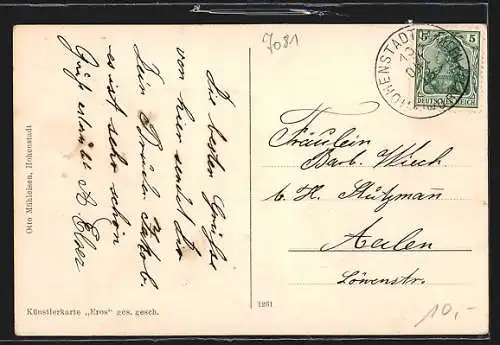 7081
Die besten Grüße
von hier sendet Dir
Dein Bruder Jakob,
es ist sehr schön
Gruß erlaubt A. Elser
Otto Mühleisen, Hohenstadt
Künstlerkarte „Eros“ ges. gesch.
1261
HOHENSTADT
5 5
DEUTSCHES REICH
Fräulein
Barb. Wiech
b. H. Stützmann
Aalen
Löwenstr.
10,-